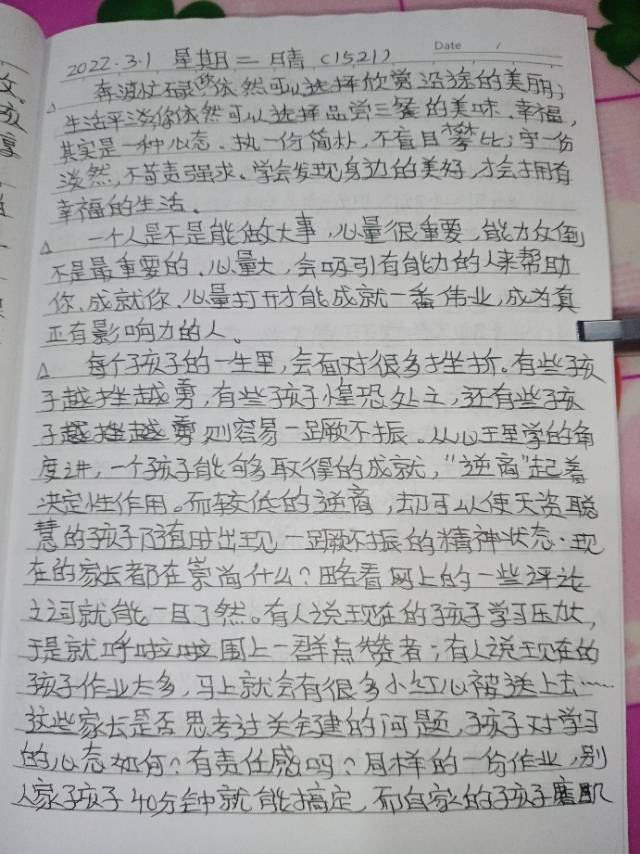 Date /
2022.3.1 星期二 晴 (1521)
奔波忙碌你依然可以选择欣赏沿途的美丽;
生活平淡你依然可以选择品尝三餐的美味。幸福,
其实是一种心态。执一份简朴,不盲目攀比;守一份
淡然,不苛责强求。学会发现身边的美好,才会拥有
幸福的生活。
△ 一个人是不是能做大事,心量很重要,能力反倒
不是最重要的。心量大,会吸引有能力的人来帮助
你,成就你。心量打开才能成就一番伟业,成为真
正有影响力的人。
△ 每个孩子的一生里,会面对很多挫折。有些孩
子越挫越勇,有些孩子惶恐处之,还有些孩
子越挫越勇则容易一蹶不振。从心王里学的角
度讲,一个孩子能够取得的成就,“逆商”起着
决定性作用。而较低的逆商,却可以使天资聪
慧的孩子随时出现一蹶不振的精神状态。现
在的家长都在崇尚什么?略看网上的一些评论
之词就能一目了然。有人说现在的孩子学习压力大,
于是就呼啦啦围上一群点赞者;有人说现在的
孩子作业太多,马上就会有很多小红心被送上去……
这些家长是否思考过关键的问题,孩子对学习
的心态如何?有责任感吗?同样的一份作业,别
人家孩子40分钟就能搞定,而自家的孩子磨叽